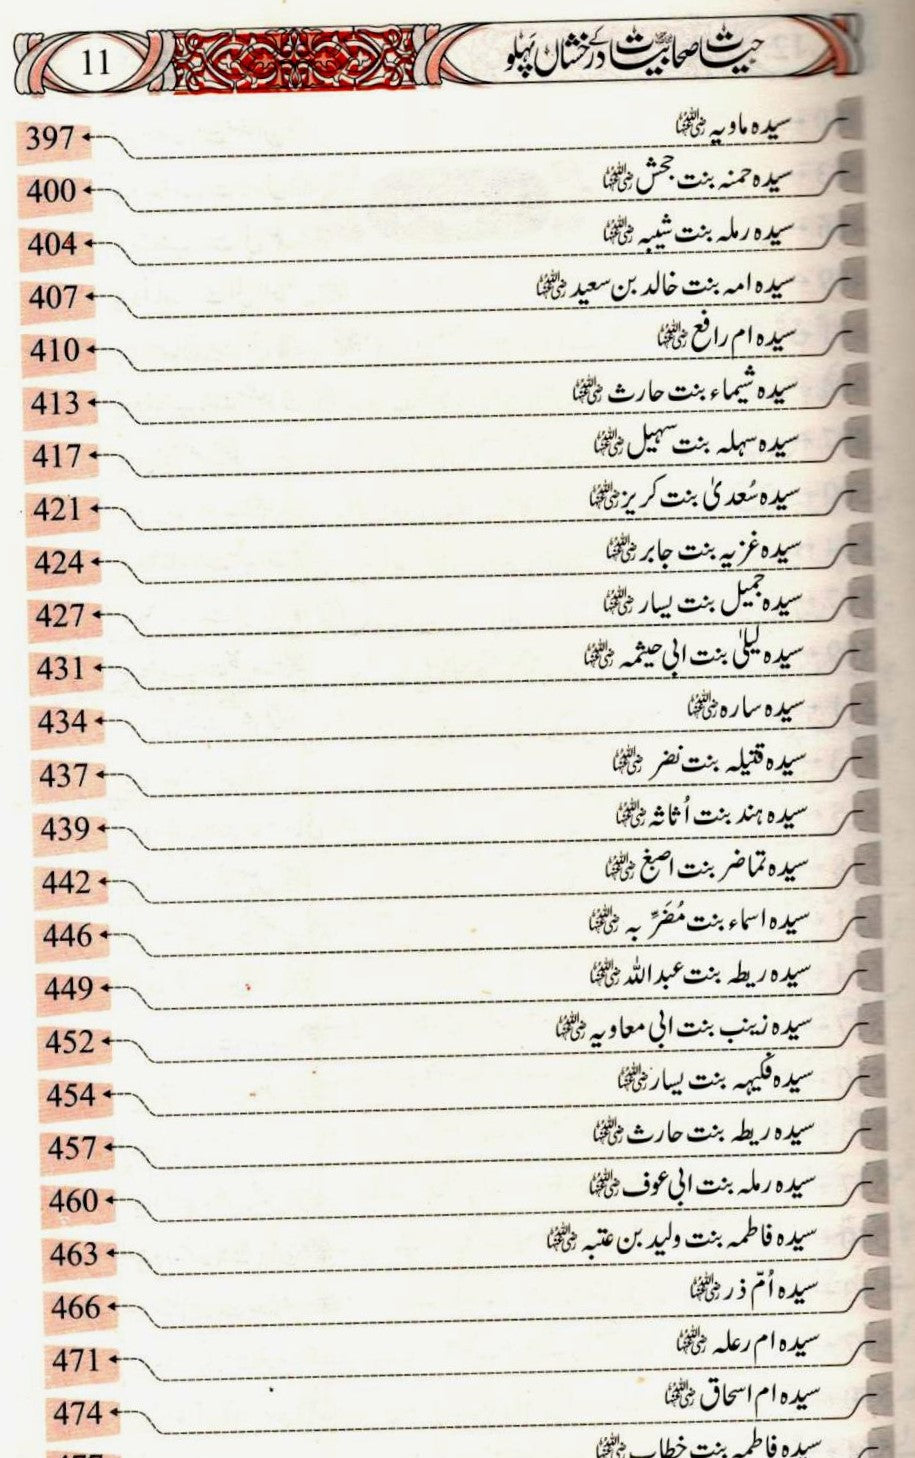 حیات صحابیات کے درخشاں پہلو 11
سیدہ ماویہ رضی اللہ عنہا 397
سیدہ حمنہ بنت جحش رضی اللہ عنہا 400
سیدہ رملہ بنت شیبہ رضی اللہ عنہا 404
سیدہ امہ بنت خالد بن سعید رضی اللہ عنہا 407
سیدہ ام رافع رضی اللہ عنہا 410
سیدہ شیماء بنت حارث رضی اللہ عنہا 413
سیدہ سہلہ بنت سہیل رضی اللہ عنہا 417
سیدہ سُعدیٰ بنت کریز رضی اللہ عنہا 421
سیدہ غزیہ بنت جابر رضی اللہ عنہا 424
سیدہ جمیل بنت یسار رضی اللہ عنہا 427
سیدہ لیلیٰ بنت ابی حیثمہ رضی اللہ عنہا 431
سیدہ سارہ رضی اللہ عنہا 434
سیدہ قتیلہ بنت نضر رضی اللہ عنہا 437
سیدہ ہند بنت اُثاثہ رضی اللہ عنہا 439
سیدہ تماضر بنت اصبغ رضی اللہ عنہا 442
سیدہ اسماء بنت مُضَرِّ بہ رضی اللہ عنہا 446
سیدہ ریطہ بنت عبداللہ رضی اللہ عنہا 449
سیدہ زینب بنت ابی معاویہ رضی اللہ عنہا 452
سیدہ فکیہہ بنت یسار رضی اللہ عنہا 454
سیدہ ریطہ بنت حارث رضی اللہ عنہا 457
سیدہ رملہ بنت ابی عوف رضی اللہ عنہا 460
سیدہ فاطمہ بنت ولید بن عتبہ رضی اللہ عنہا 463
سیدہ اُمّ ذر رضی اللہ عنہا 466
سیدہ ام رعلہ رضی اللہ عنہا 471
سیدہ ام اسحاق رضی اللہ عنہا 474
سیدہ فاطمہ بنت خطاب رضی اللہ عنہا